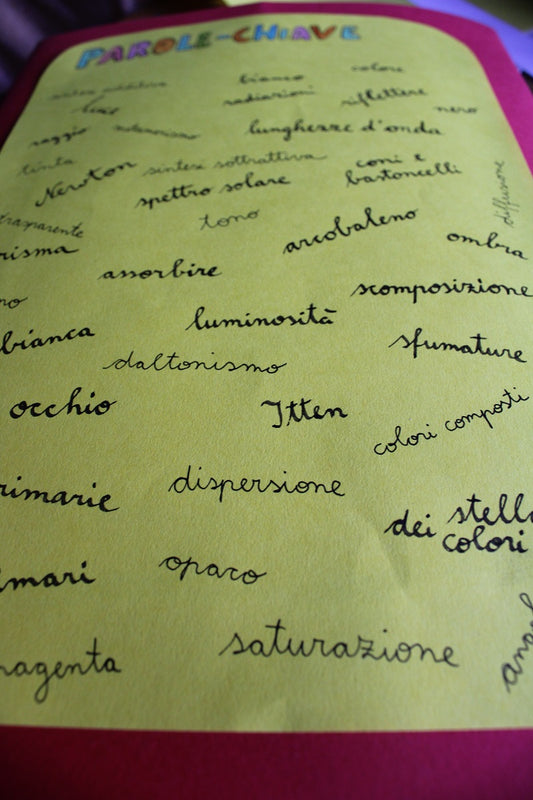 PAROLE-CHIAVE
sintesi additiva bianco colore
luce radiazioni riflettere nero
raggio metamerismo lunghezze d'onda
tinta sintesi sottrattiva coni e
Newton spettro solare bastoncelli
diffusione
trasparente tono arcobaleno
risma ombra
assorbire
scomposizione
no
bianca luminosità sfumature
daltonismo
occhio Itten colori composti
rimarie dispersione
dei stella
colori
imari opaco
magenta saturazione